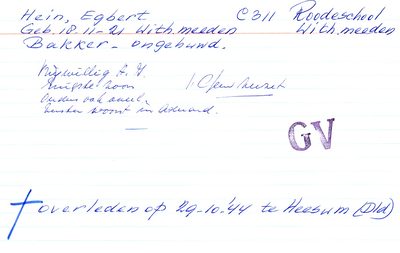 Hein, Egbert C311 Roodeschool
Geb. 18-11-21 With.meeden With.meeden
Bakker - ongehuwd.
Vrijwillig A.D.
Jongste zoon
Ouders ook
woont in
GV
† overleden op 29-10-'44 te Heesum (Dld)